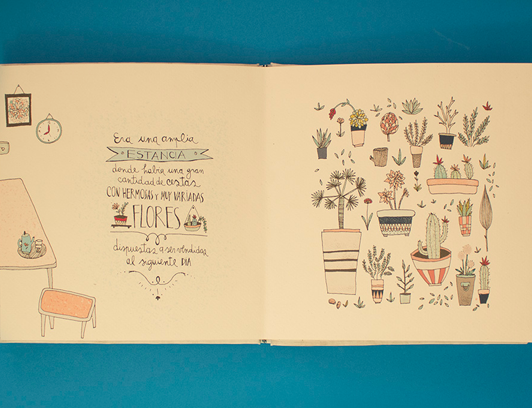 Era una amplia
ESTANCIA
donde había una gran
cantidad de cestas
CON HERMOSAS Y MUY VARIADAS
FLORES
dispuestas a ser vendidas
al siguiente DIA